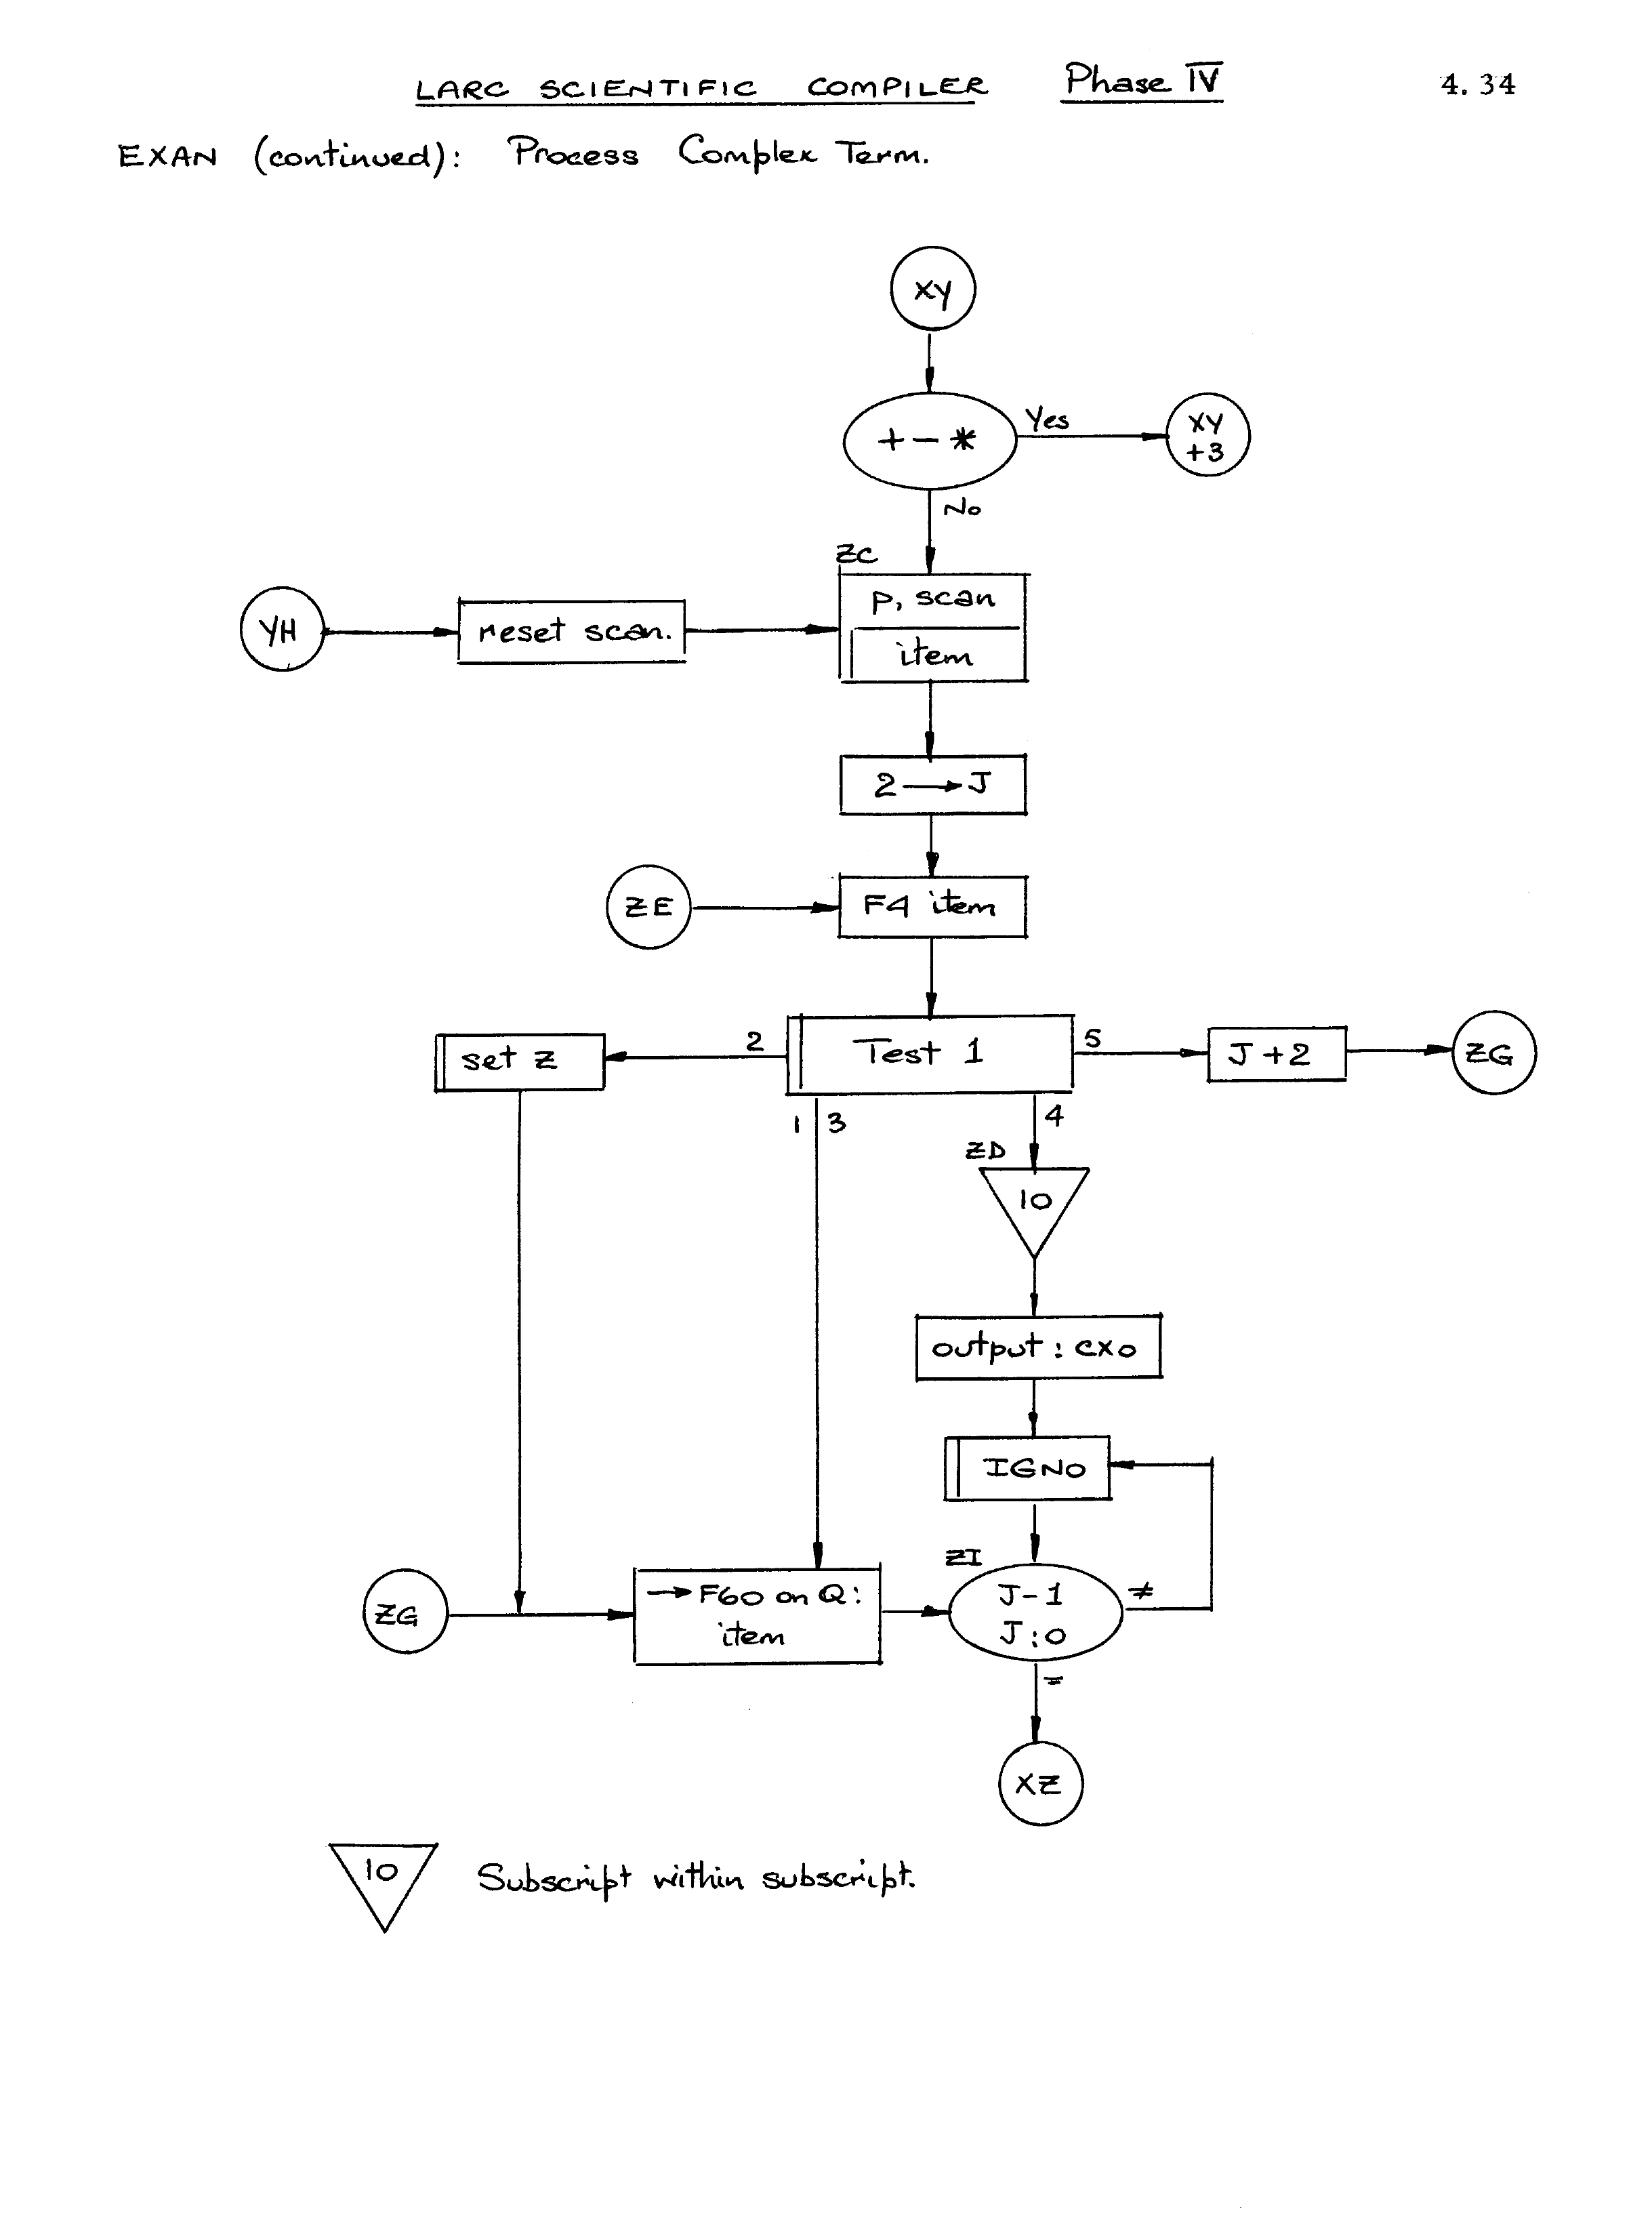 LARC SCIENTIFIC COMPILER Phase IV 4.34
EXAN (continued): Process Complex Term.
XY
+ - *
Yes
XY
+3
No
ZC
YH
reset scan.
P, scan
item
2 → J
ZE
F4 item
set Z
2
Test 1
5
J+2
ZG
1 3
4
ZD
10
output: cxo
IGNO
ZI
ZG
→ F60 on Q:
item
J-1
J:0
≠
=
XZ
10
Subscript within subscript.